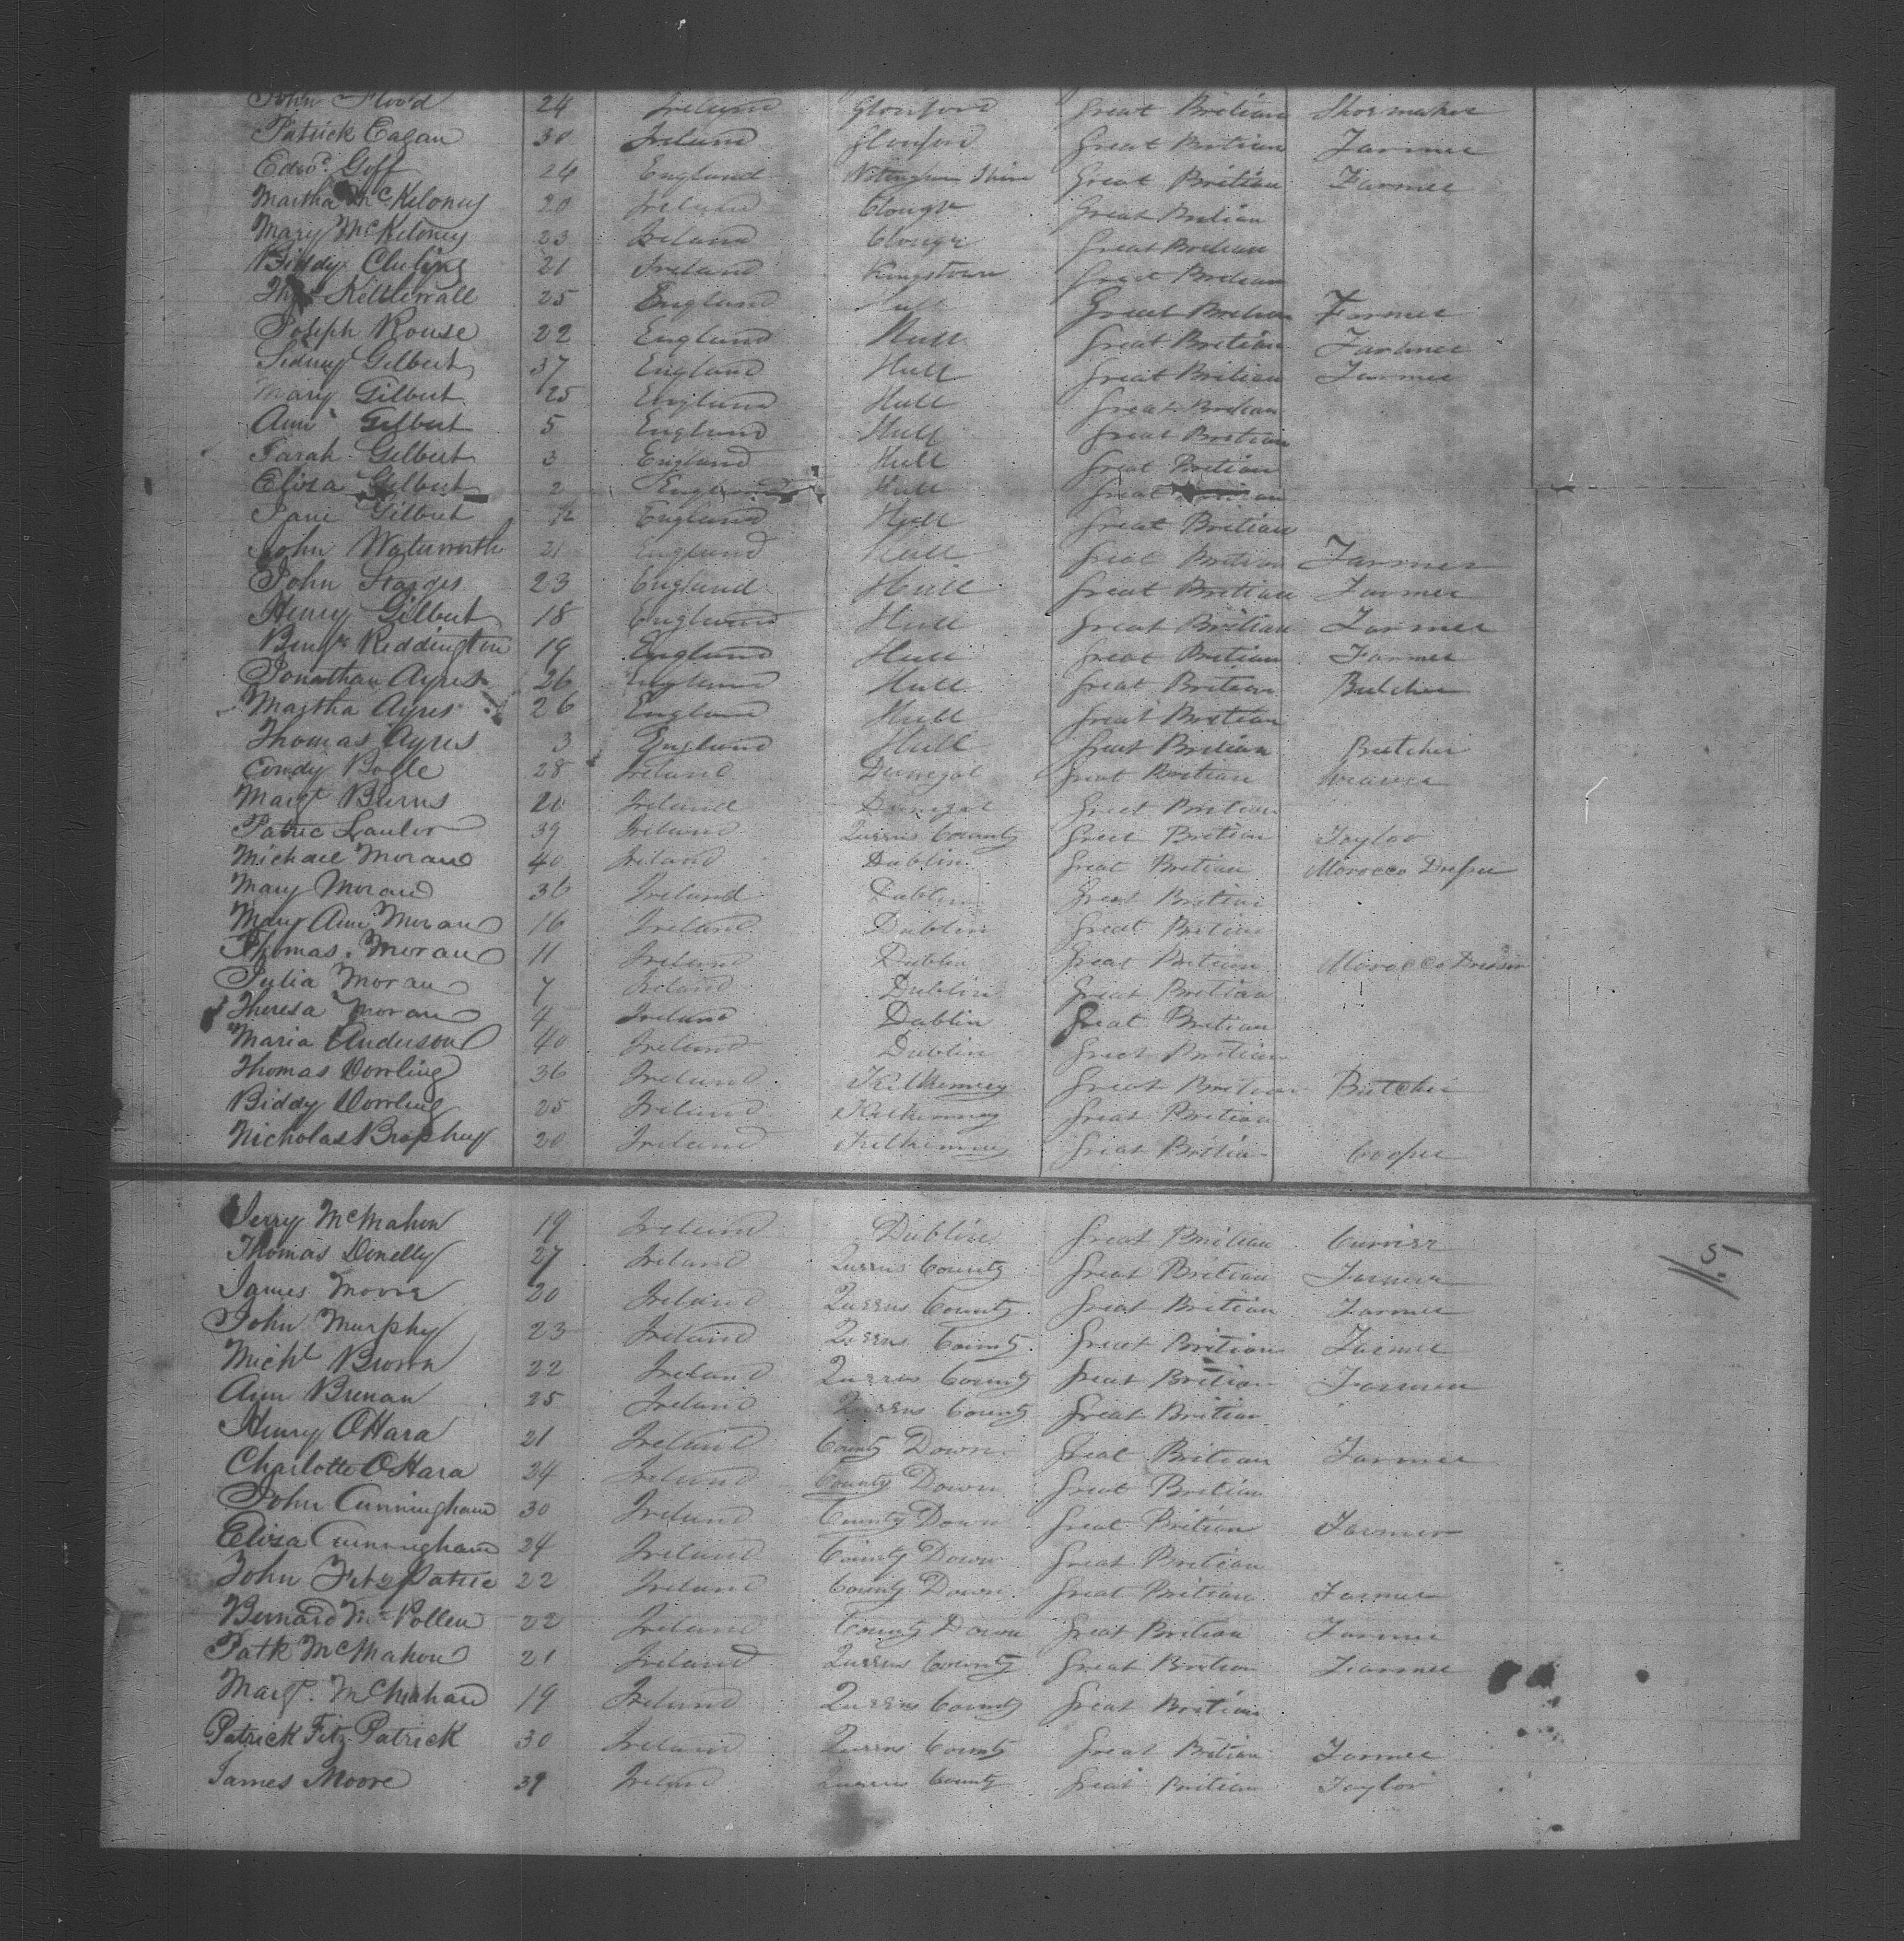 John Flood 24 Ireland Glonford Great Britian Shoemaker
Patrick Eagan 30 Ireland Glonford Great Britian Farmer
Edwd. Goff 24 England Great Britian Farmer
Martha McKeloney 20 Ireland Clough Great Britian
Mary McKeloney 23 Ireland Clough Great Britian
Biddy 21 Ireland Kingstown Great Britian
Kettlewall 25 England Hull Great Britian Farmer
Joseph Rouse 22 England Hull Great Britian Farmer
Sidney Gilbert 37 England Hull Great Britian Farmer
Mary Gilbert 25 England Hull Great Britian
Ann Gilbert 5 England Hull Great Britian
Sarah Gilbert 3 England Hull Great Britian
Eliza Gilbert 2 England Hull Great
Jane Gilbert England Hull Great Britian
John Waterworth 21 England Hull Great Britian Farmer
John 23 England Hull Great Britian Farmer
Henry Gilbert 18 England Hull Great Britian Farmer
Benjn Reddington 19 England Hull Great Britian Farmer
Jonathan Ayres 26 England Hull Great Britian Butcher
Martha Ayres 26 England Hull Great Britian
Thomas Ayres 3 England Hull Great Britian Butcher
Condy Bogle 28 Ireland Dunegal Great Britian Weaver
Margt Burns 20 Ireland Dunegal Great Britian
Patric Lawlor 39 Ireland Queens County Great Britian Taylor
Michael Moran 40 Ireland Dublin Great Britian Morocco Dresser
Mary Moran 36 Ireland Dublin Great Britian
Mary Ann Moran 16 Ireland Dublin Great Britian
Thomas Moran 11 Ireland Dublin Great Britian Morocco Dresser
Julia Moran 7 Ireland Dublin Great Britian
Theresa Moran 4 Ireland Dublin Great Britian
Maria Anderson 40 Ireland Dublin Great Britian
Thomas Dowling 36 Ireland Kilkenney Great Britian Butcher
Biddy Dowling 25 Ireland Kilkenney Great Britian
Nicholas Brophey 20 Ireland Kilkenney Great Britian Cooper
Jerry McMahon 19 Ireland Dublin Great Britian Currier
Thomas Donelly 27 Ireland Queens County Great Britian Farmer
James Moore 20 Ireland Queens County Great Britian Farmer
John Murphy 23 Ireland Queens County Great Britian Farmer
Michl Brown 22 Ireland Queens County Great Britian Farmer
Ann Brenan 25 Ireland Queens County Great Britian
Henry OHara 21 Ireland County Down Great Britian Farmer
Charlotte OHara 24 Ireland County Down Great Britian
John Cunningham 30 Ireland County Down Great Britian Farmer
Eliza Cunningham 24 Ireland County Down Great Britian
John Fitz Patric 22 Ireland County Down Great Britian Farmer
Bernard McPollen 22 Ireland County Down Great Britian Farmer
Patk McMahon 21 Ireland Queens County Great Britian Farmer
Margt. McMahan 19 Ireland Queens County Great Britian
Patrick Fitz Patrick 30 Ireland Queens County Great Britian Farmer
James Moore 39 Ireland Queens County Great Britian Taylor
5.